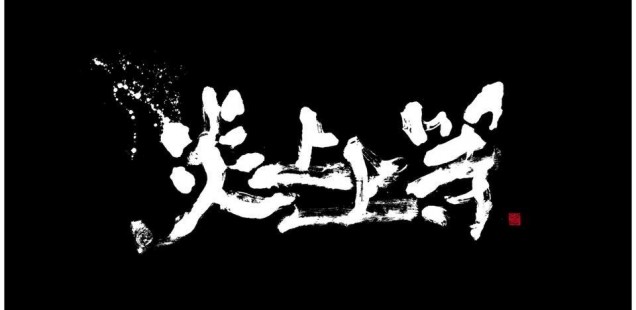 炎上上等